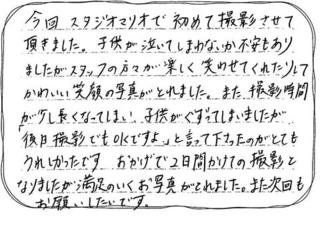 今回スタジオマリオで初めて撮影させて
頂きました。子供が泣いてしまわないか不安もあり
ましたがスタッフの方々が楽しく笑わせてくれたりして
かわいい笑顔の写真がとれました。また撮影時間
が少し長くなってしまい、子供がぐずってしまいましたが
「後日撮影でもOKですよ」と言って下さったのがとても
うれしかったです おかげで2日間かけての撮影と
なりましたが満足のいくお写真がとれました。また次回も
お願いしたいです。